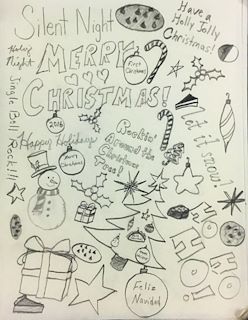 Silent Night
Have a
Holly Jolly
Christmas!
Holy
Night
MERRY
CHRISTMAS!
First
Christmas!
Jingle Bell Rock!!!
2016
Happy Holidays
Merry
Christmas!
Rockin'
Around the
Christmas
Tree!
let it snow!
HO
HO
HO!
Feliz
Navidad